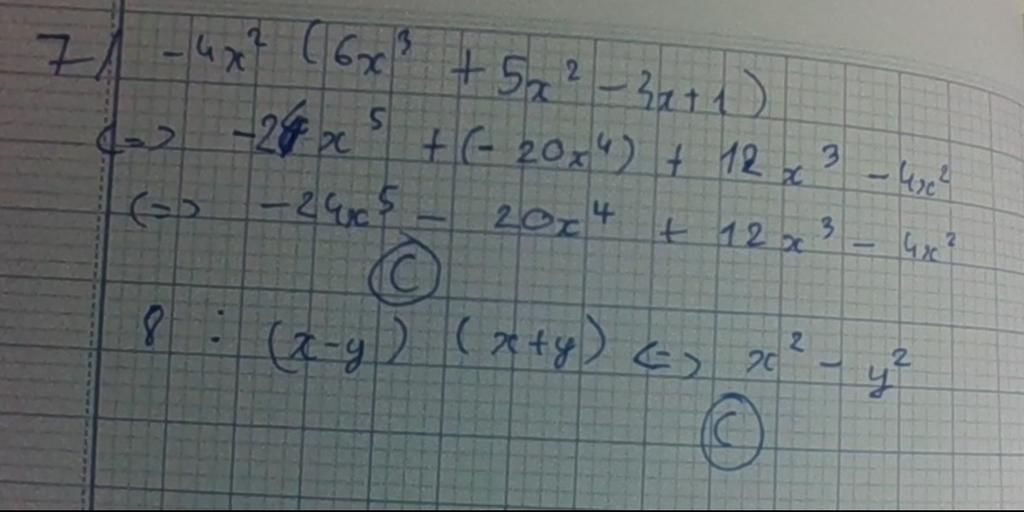 7/ -4x² (6x³ + 5x² - 3x + 1)
<=> -24x⁵ + (-20x⁴) + 12x³ - 4x²
<=> -24x⁵ - 20x⁴ + 12x³ - 4x²
C
8 : (x-y) (x+y) <=> x² - y²
C